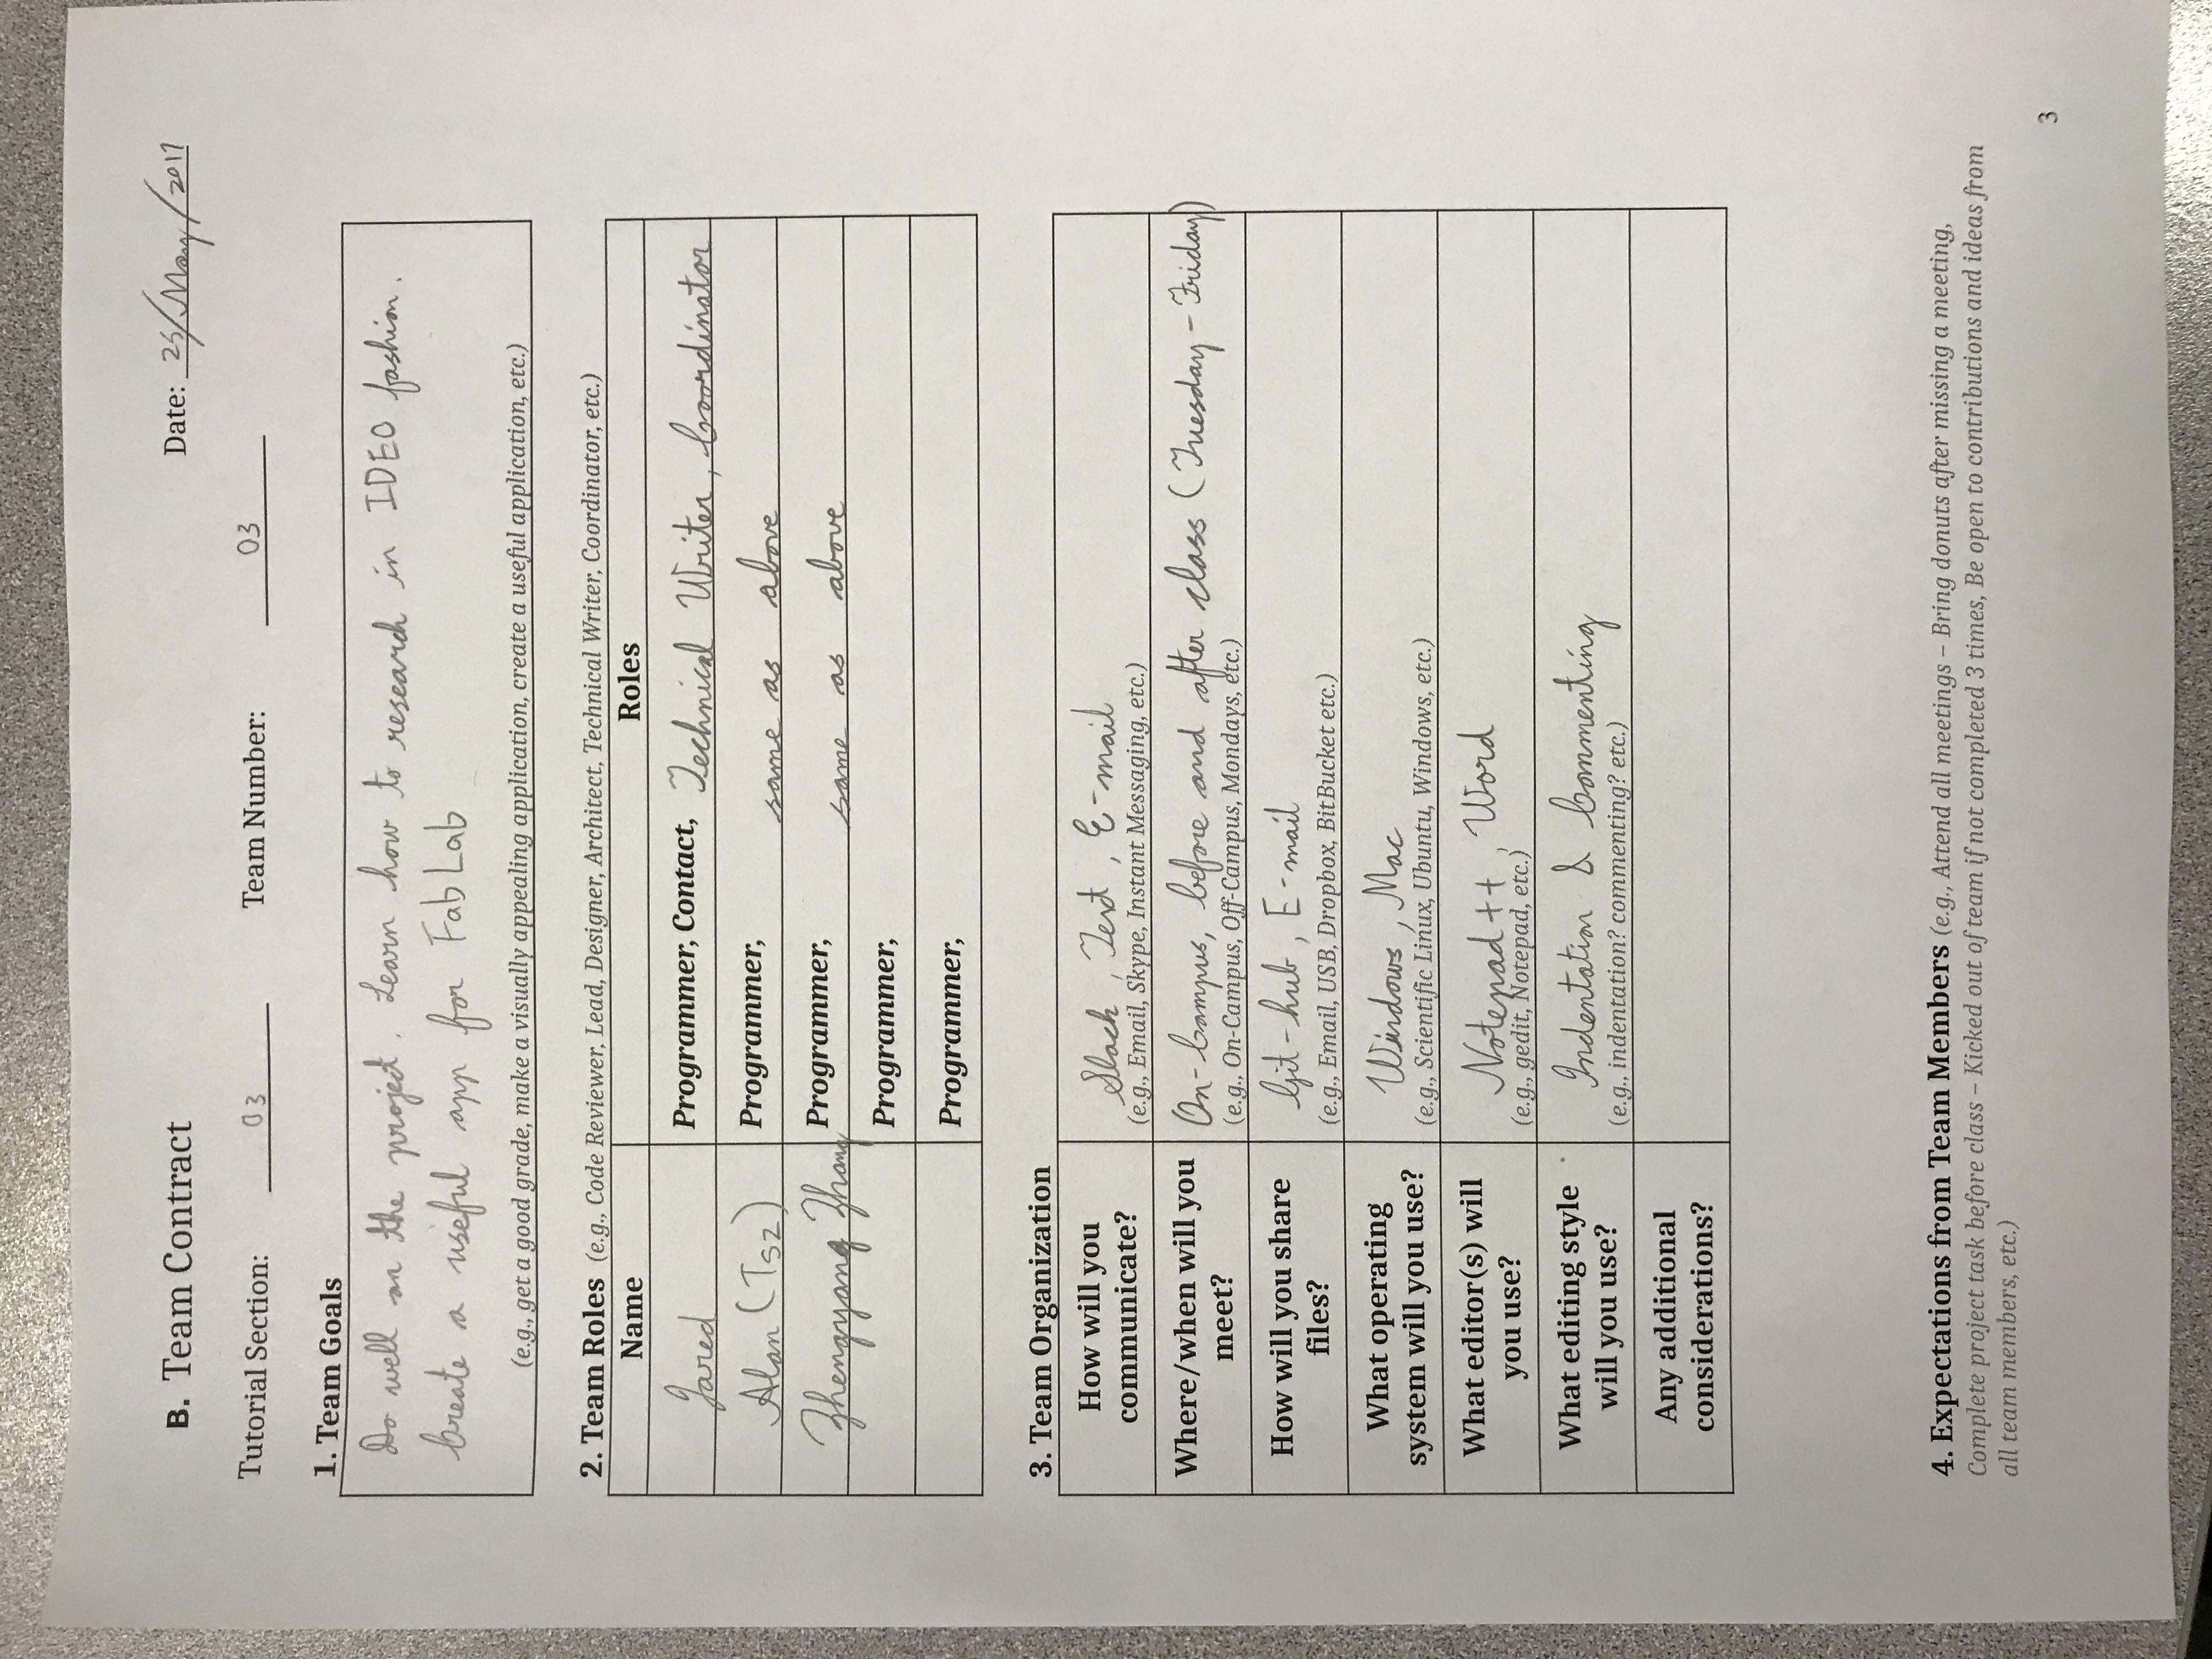 B. Team Contract Date: 25/May/2017
Tutorial Section: 03 Team Number: 03
1. Team Goals
Do well on the project. Learn how to research in IDEO fashion.
Create a useful app for Fab Lab
(e.g., get a good grade, make a visually appealing application, create a useful application, etc.)
2. Team Roles (e.g., Code Reviewer, Lead, Designer, Architect, Technical Writer, Coordinator, etc.)
Name Roles
Jared Programmer, Contact, Technical Writer, Coordinator
Alan (Tsz) Programmer, same as above
Zhengyang Zhang Programmer, same as above
Programmer,
Programmer,
3. Team Organization
How will you
communicate?
Slack, Text, E-mail
(e.g., Email, Skype, Instant Messaging, etc.)
Where/when will you
meet?
On-Campus, before and after class (Tuesday - Friday)
(e.g., On-Campus, Off-Campus, Mondays, etc.)
How will you share
files?
Git-hub, E-mail
(e.g., Email, USB, Dropbox, BitBucket etc.)
What operating
system will you use?
Windows, Mac
(e.g., Scientific Linux, Ubuntu, Windows, etc.)
What editor(s) will
you use?
Notepad++, Word
(e.g., gedit, Notepad, etc.)
What editing style
will you use?
Indentation & Commenting
(e.g., indentation? commenting? etc.)
Any additional
considerations?
4. Expectations from Team Members (e.g., Attend all meetings – Bring donuts after missing a meeting,
Complete project task before class – Kicked out of team if not completed 3 times, Be open to contributions and ideas from
all team members, etc.)
3